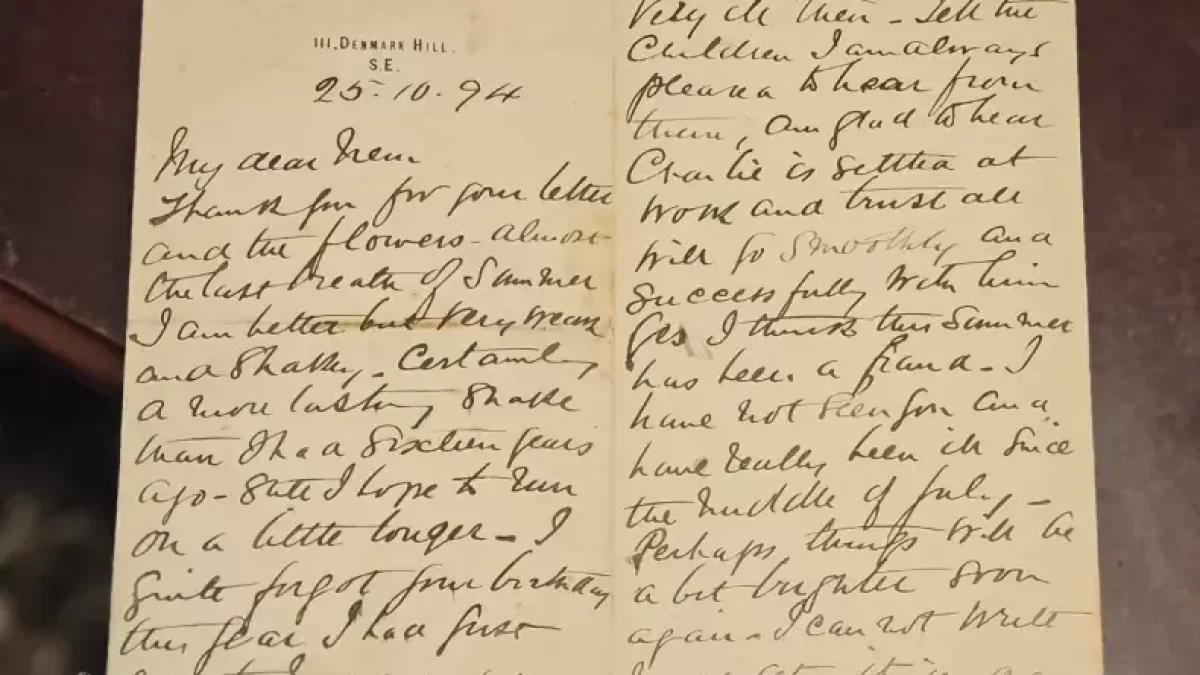 111, DENMARK HILL.
S.E.
25.10.94
My dear
Thank you for your letter
and the flowers - almost
the last breath of Summer
I am better but very weak
and Shaky - Certainly
a more lasting Shake
than I had sixteen years
ago - Still I hope to run
on a little longer - I
quite forgot your birthday
this year I had just
Very ill then - Tell the
Children I am always
pleased to hear from
them, am glad to hear
Charlie is settled at
work and trust all
will go Smoothly and
successfully with him
Yes I think this Summer
has been a fraud - I
have not seen you and
have really been ill since
the middle of July -
Perhaps things will be
a bit brighter soon
again - I can not write